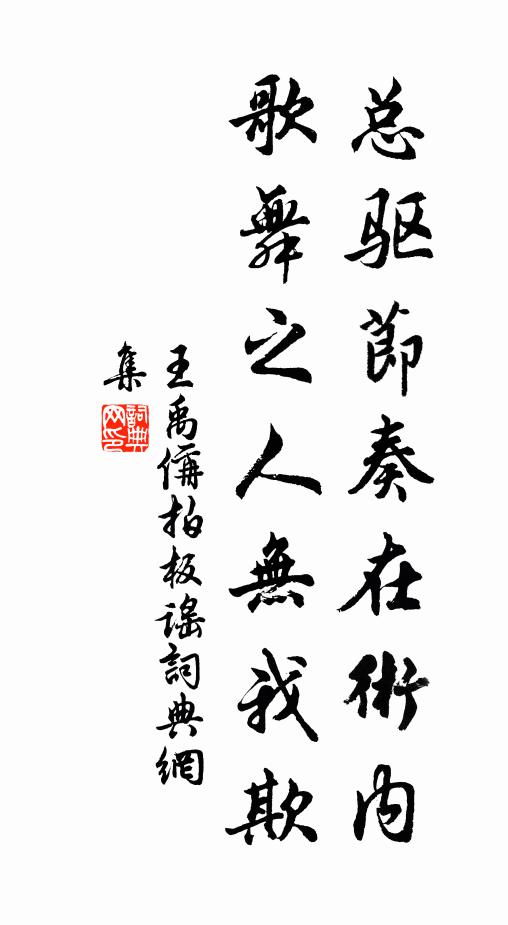 总驱節奏在術内
歌舞之人無我欺
王禹偁拍板謡詞典網
集
詞典网印